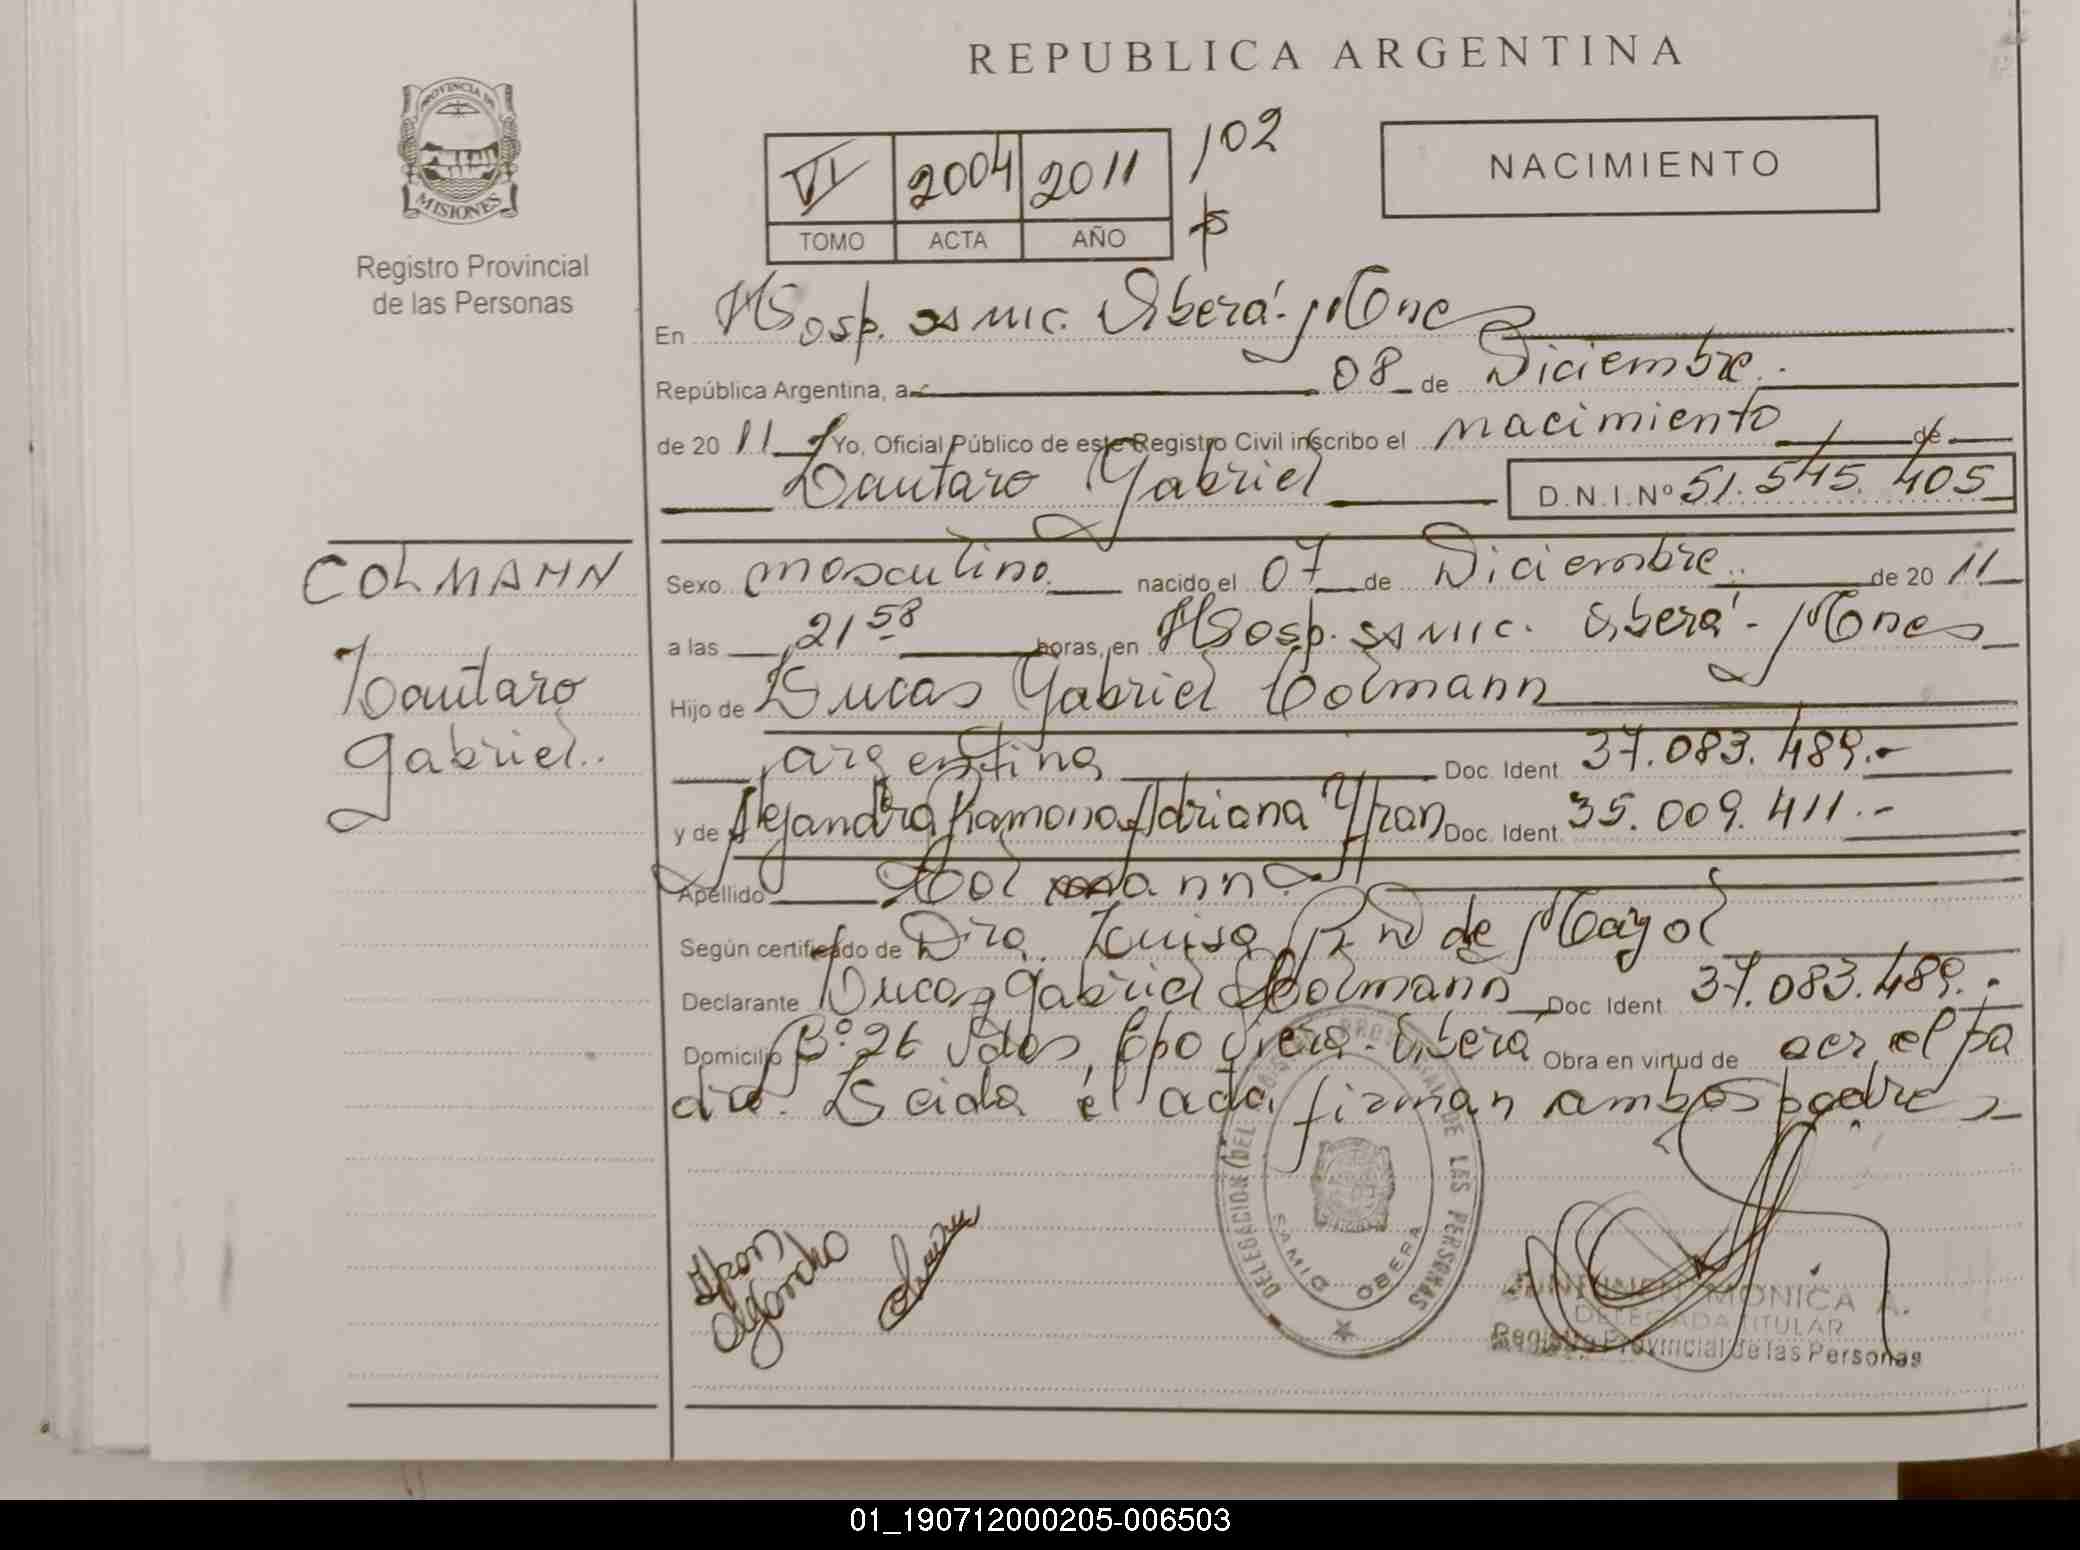 REPUBLICA ARGENTINA
PROVINCIA DE
MISIONES
Registro Provincial
de las Personas
VI 2004 2011 102
TOMO ACTA AÑO
NACIMIENTO
En Hosp. SAMIC. Oberá. Mones
República Argentina, a 08 de Diciembre
de 20 11 Yo, Oficial Público de este Registro Civil inscribo el nacimiento de
Lautaro Gabriel D.N.I.Nº 51.545.405
COLMANN
Lautaro
Gabriel
Sexo masculino nacido el 07 de Diciembre de 20 11
a las 21 58 horas, en Hosp. SAMIC. Oberá - Mones
Hijo de Lucas Gabriel Colmann
argentina Doc. Ident. 37.083.489.-
y de Alejandra Ramona Adriana Doc. Ident. 35.009.411.-
Apellido Colmann
Según certificado de Dra. Luisa de Mayol
Declarante Lucas Gabriel Colmann Doc. Ident. 37.083.489.-
Domicilio Bº 26 Oberá Obra en virtud de ser el pa
dre. Leida el acta, firman ambos padres
DELEGACION DEL REGISTRO PROVINCIAL DE LAS PERSONAS
SAMIC OBERA
MONICA A.
DELEGADA TITULAR
Registro Provincial de las Personas
01_190712000205-006503